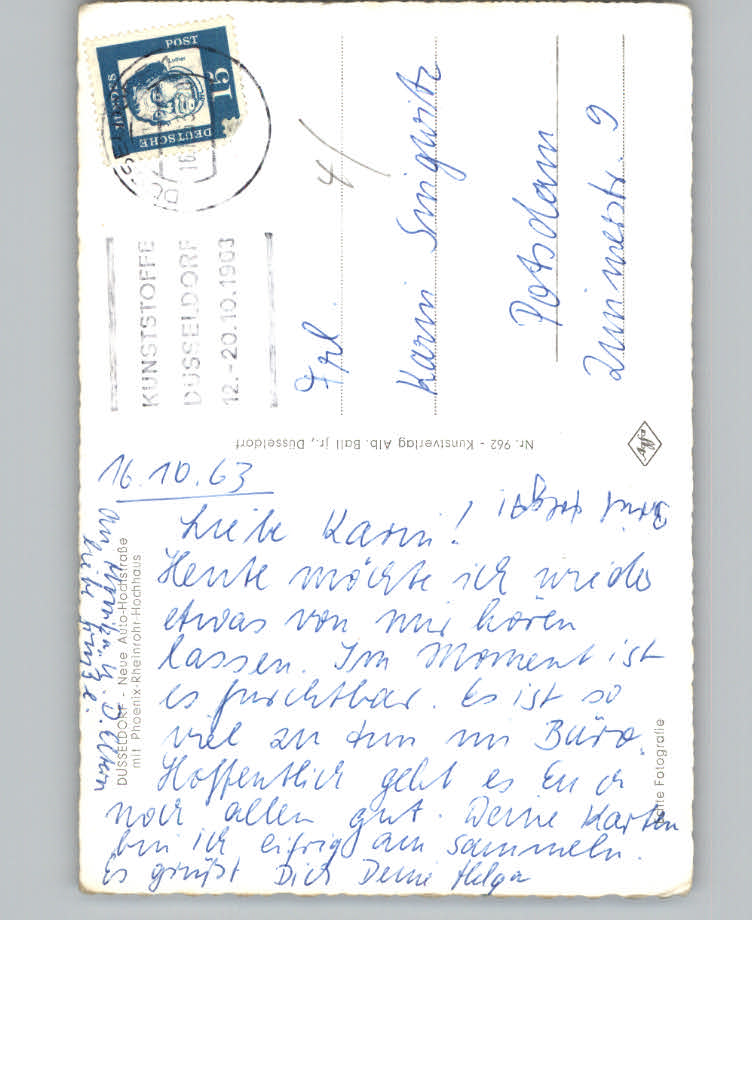 16.10.63
Liebe Karin!
Heute möchte ich wieder
etwas von mir hören
lassen. Im Moment ist
es furchtbar. Es ist so
viel zu tun im Büro.
Hoffentlich geht es Euch
noch allen gut. Deine Karten
bin ich eifrig am sammeln.
Es grüßt Dich Deine Helga
An Monika u. D. Eltern
liebe Grüße.
Frl.
Karin
Potsdam
Zimmerstr. 9
4/
DEUTSCHE
BUNDES
POST
15
KUNSTSTOFFE
DÜSSELDORF
12.-20.10.1963
Nr. 962 - Kunstverlag Alb. Ball jr., Düsseldorf
DÜSSELDORF - Neue Auto-Hochstraße
mit Phoenix-Rheinrohr-Hochhaus
Echte Fotografie
Agfa